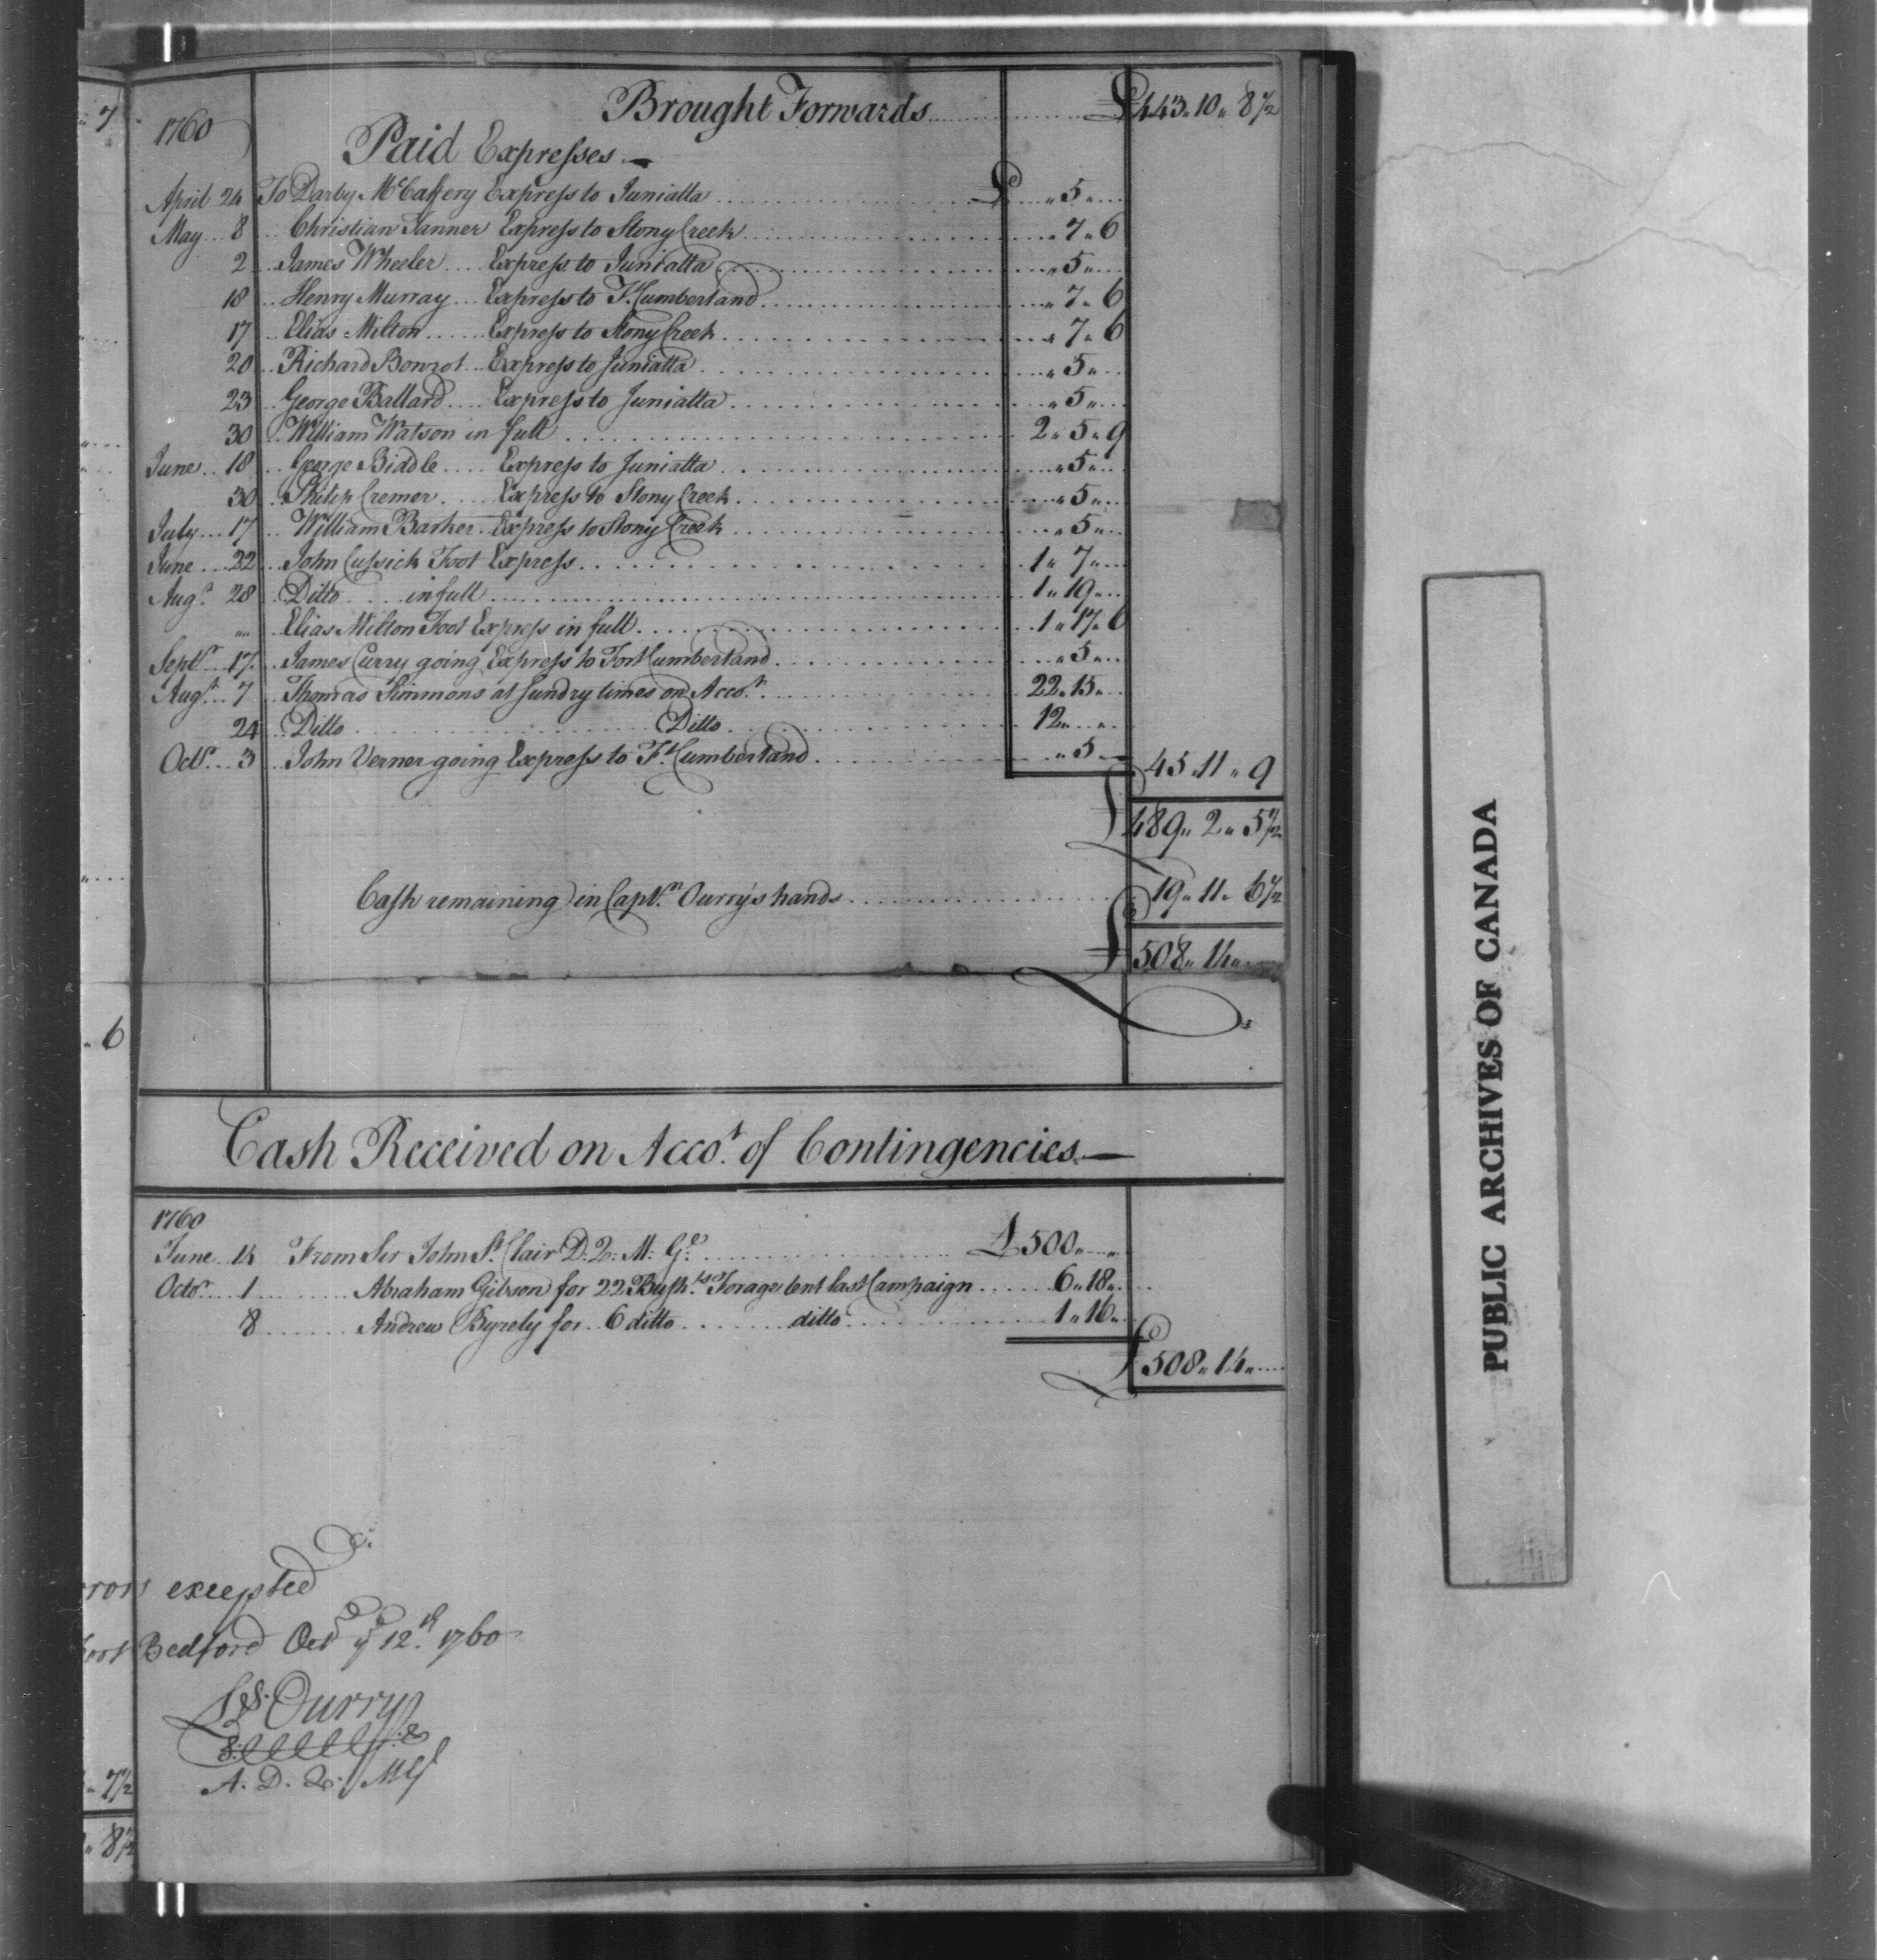 7
Brought Forwards £443.10.8½
1760
Paid Expresses.—
April 24 To Darby McCaffery Express to Juniatta £ " 5 "
May 8 Christian Tanner Express to Stony Creek " 7 " 6
2 James Wheeler Express to Juniatta " 5 "
18 Henry Murray Express to Ft. Cumberland " 7 " 6
17 Elias Milton Express to Stony Creek " 7 " 6
20 Richard Bonrot Express to Juniatta " 5 "
23 George Ballard Express to Juniatta " 5 "
30 William Watson in full 2 " 5 " 9
June 18 George Biddle Express to Juniatta " 5 "
30 Philip Cremer Express to Stony Creek " 5 "
July 17 William Barker Express to Stony Creek " 5 "
June 22 John Cussick Foot Express 1 " 7 "
Augt. 28 Ditto in full 1 " 19 "
" Elias Milton Foot Express in full 1 " 17 " 6
Septr. 17 James Curry going Express to Fort Cumberland " 5 "
Augt. 7 Thomas Simmons at sundry times on Accot. 22 " 15 "
24 Ditto Ditto 12 " "
Octr. 3 John Verner going Express to Ft. Cumberland " 5 —
45 " 11 " 9
£489 " 2 " 5½
Cash remaining in Captn. Ourry's hands 19 " 11 " 6½
£508 " 14 "
6
Cash Received on Accot. of Contingencies.—
1760
June 14 From Sir John St. Clair D. Q: M: Gl. £500 " "
Octor. 1 Abraham Gibson for 22 Bushls. Forage lent last Campaign 6 " 18 "
8 Andrew Byrely for 6 ditto ditto 1 " 16 "
£508 " 14 "
rrors excepted
Fort Bedford Oct ye 12th 1760
Ls. Ourry
A. D. Q. M Gl
7½
8½
PUBLIC ARCHIVES OF CANADA